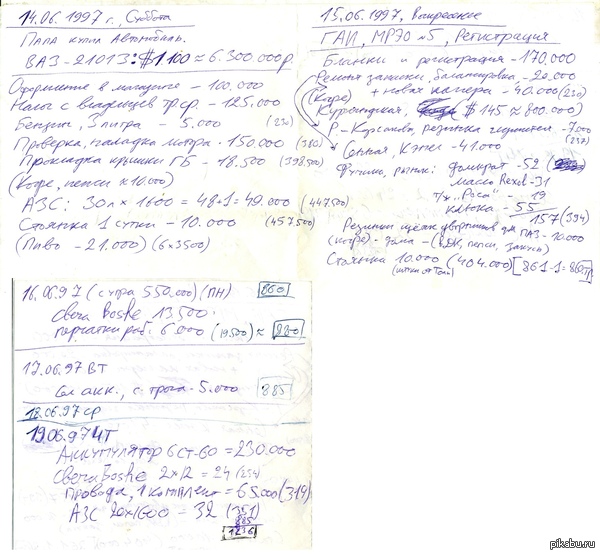 14.06.1997 г., Суббота
Папа купил Автомобиль.
ВАЗ-21013: $1100 ≈ 6.300.000р
Оформление в магазине - 100.000
Налог с владельцев тр.ср. - 125.000
Бензин, 3 литра - 5.000 (230)
Проверка, наладка мотора - 150.000 (380)
Прокладка крышки ГБ - 18.500 (398.500)
(Кофе, пепси ≈ 10.000)
АЗС: 30л × 1600 = 48+1 = 49.000 (447.500)
Стоянка 1 сутки - 10.000 (457.500)
(Пиво - 21.000) (6×3500)
15.06.1997, Воскресенье
ГАИ, МРЭО №5, Регистрация
Бланки и регистрация - 170.000
Ремонт запаски, балансировка - 20.000
(Кофе) + новая камера - 40.000 (230)
Курляндская, $145 ≈ 800.000)
Р.-Корсакова, резинка - 7.000
(237)
Сенная, - 41.000
Фучика, рынок: домкрат - 52
масло Rexol - 31
т/ж "Роса" - 19
55
157 (394)
Резинки щёток дворников ПАЗ - 10.000
(кофе) - дома - ( пепси, закусь)
Стоянка 10.000 (404.000) [861-1=860
16.06.97 (с утра 550.000) (ПН) 860
Свеча Boshe 13.500
перчатки раб. 6.000 (19.500) ≈ 880
17.06.97 ВТ
акк., с трога - 5.000 885
18.06.97 СР
19.06.97 ЧТ
Аккумулятор 6СТ-60 = 230.000
Свечи Boshe 2×12 = 24 (254)
Провода, 1 комплект = 65.000 (319)
АЗС 20×1600 = 32 (351)
885
1236
pikabu.ru